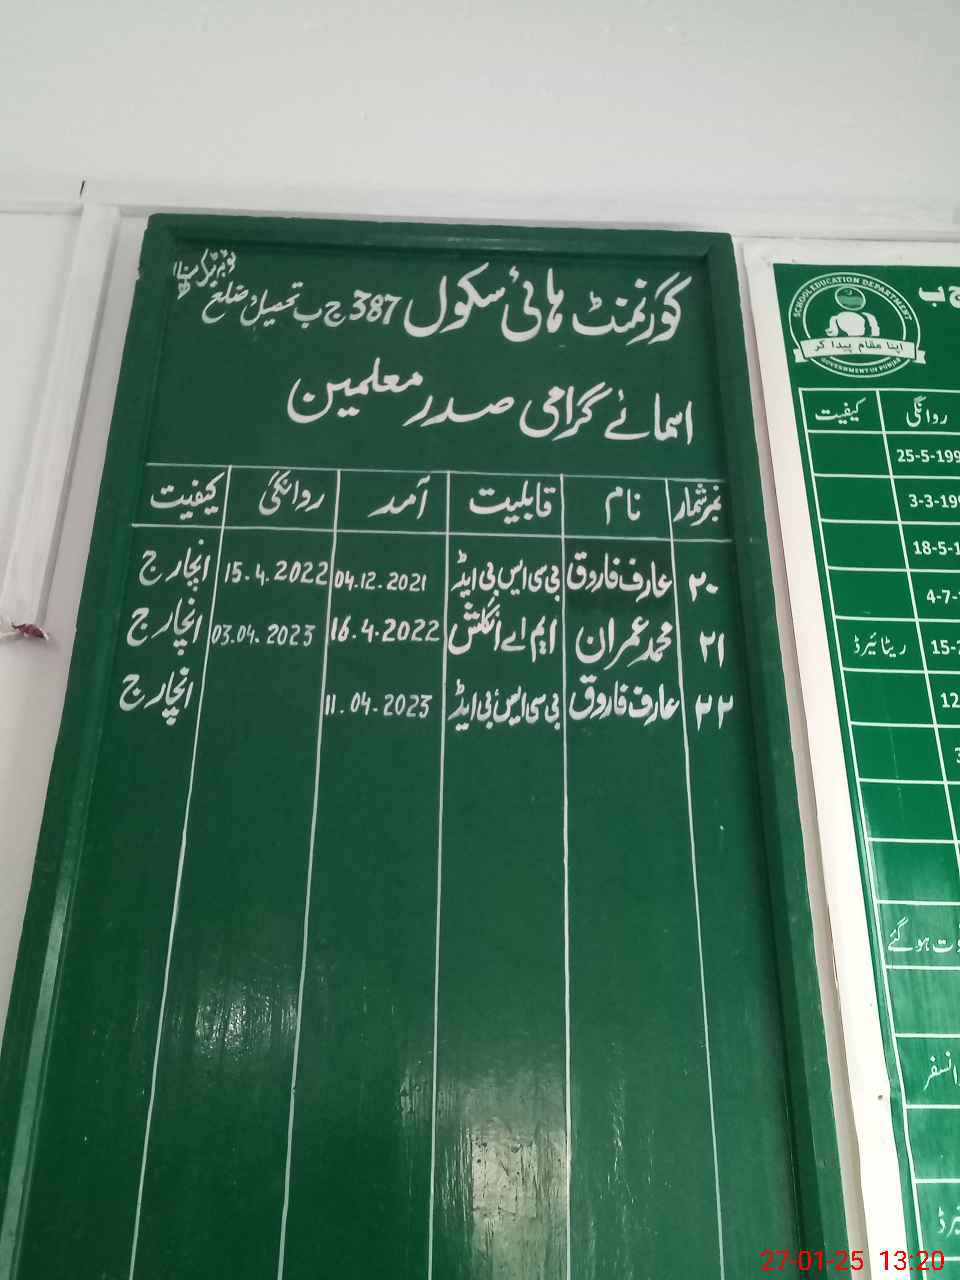 گورنمنٹ ہائی سکول 387 ج ب تحصیل و ضلع ٹوبہ ٹیک سنگھ
اسمائے گرامی صدر معلمین
نمبر شمار نام قابلیت آمد روانگی کیفیت
۲۰ عارف فاروق بی سی ایس بی ایڈ 04.12.2021 15.4.2022 انچارج
۲۱ محمد عمران ایم اے انگلش 16.4.2022 03.04.2023 انچارج
۲۲ عارف فاروق بی سی ایس بی ایڈ 11.04.2023 انچارج
ج ب
SCHOOL EDUCATION DEPARTMENT
اپنا مقام پیدا کر
GOVERNMENT OF PUNJAB
روانگی کیفیت
25-5-199
3-3-199
18-5-1
4-7-
15-2 ریٹائیرڈ
12
3
ہو گئے
انسفر
27-01-25 13:20